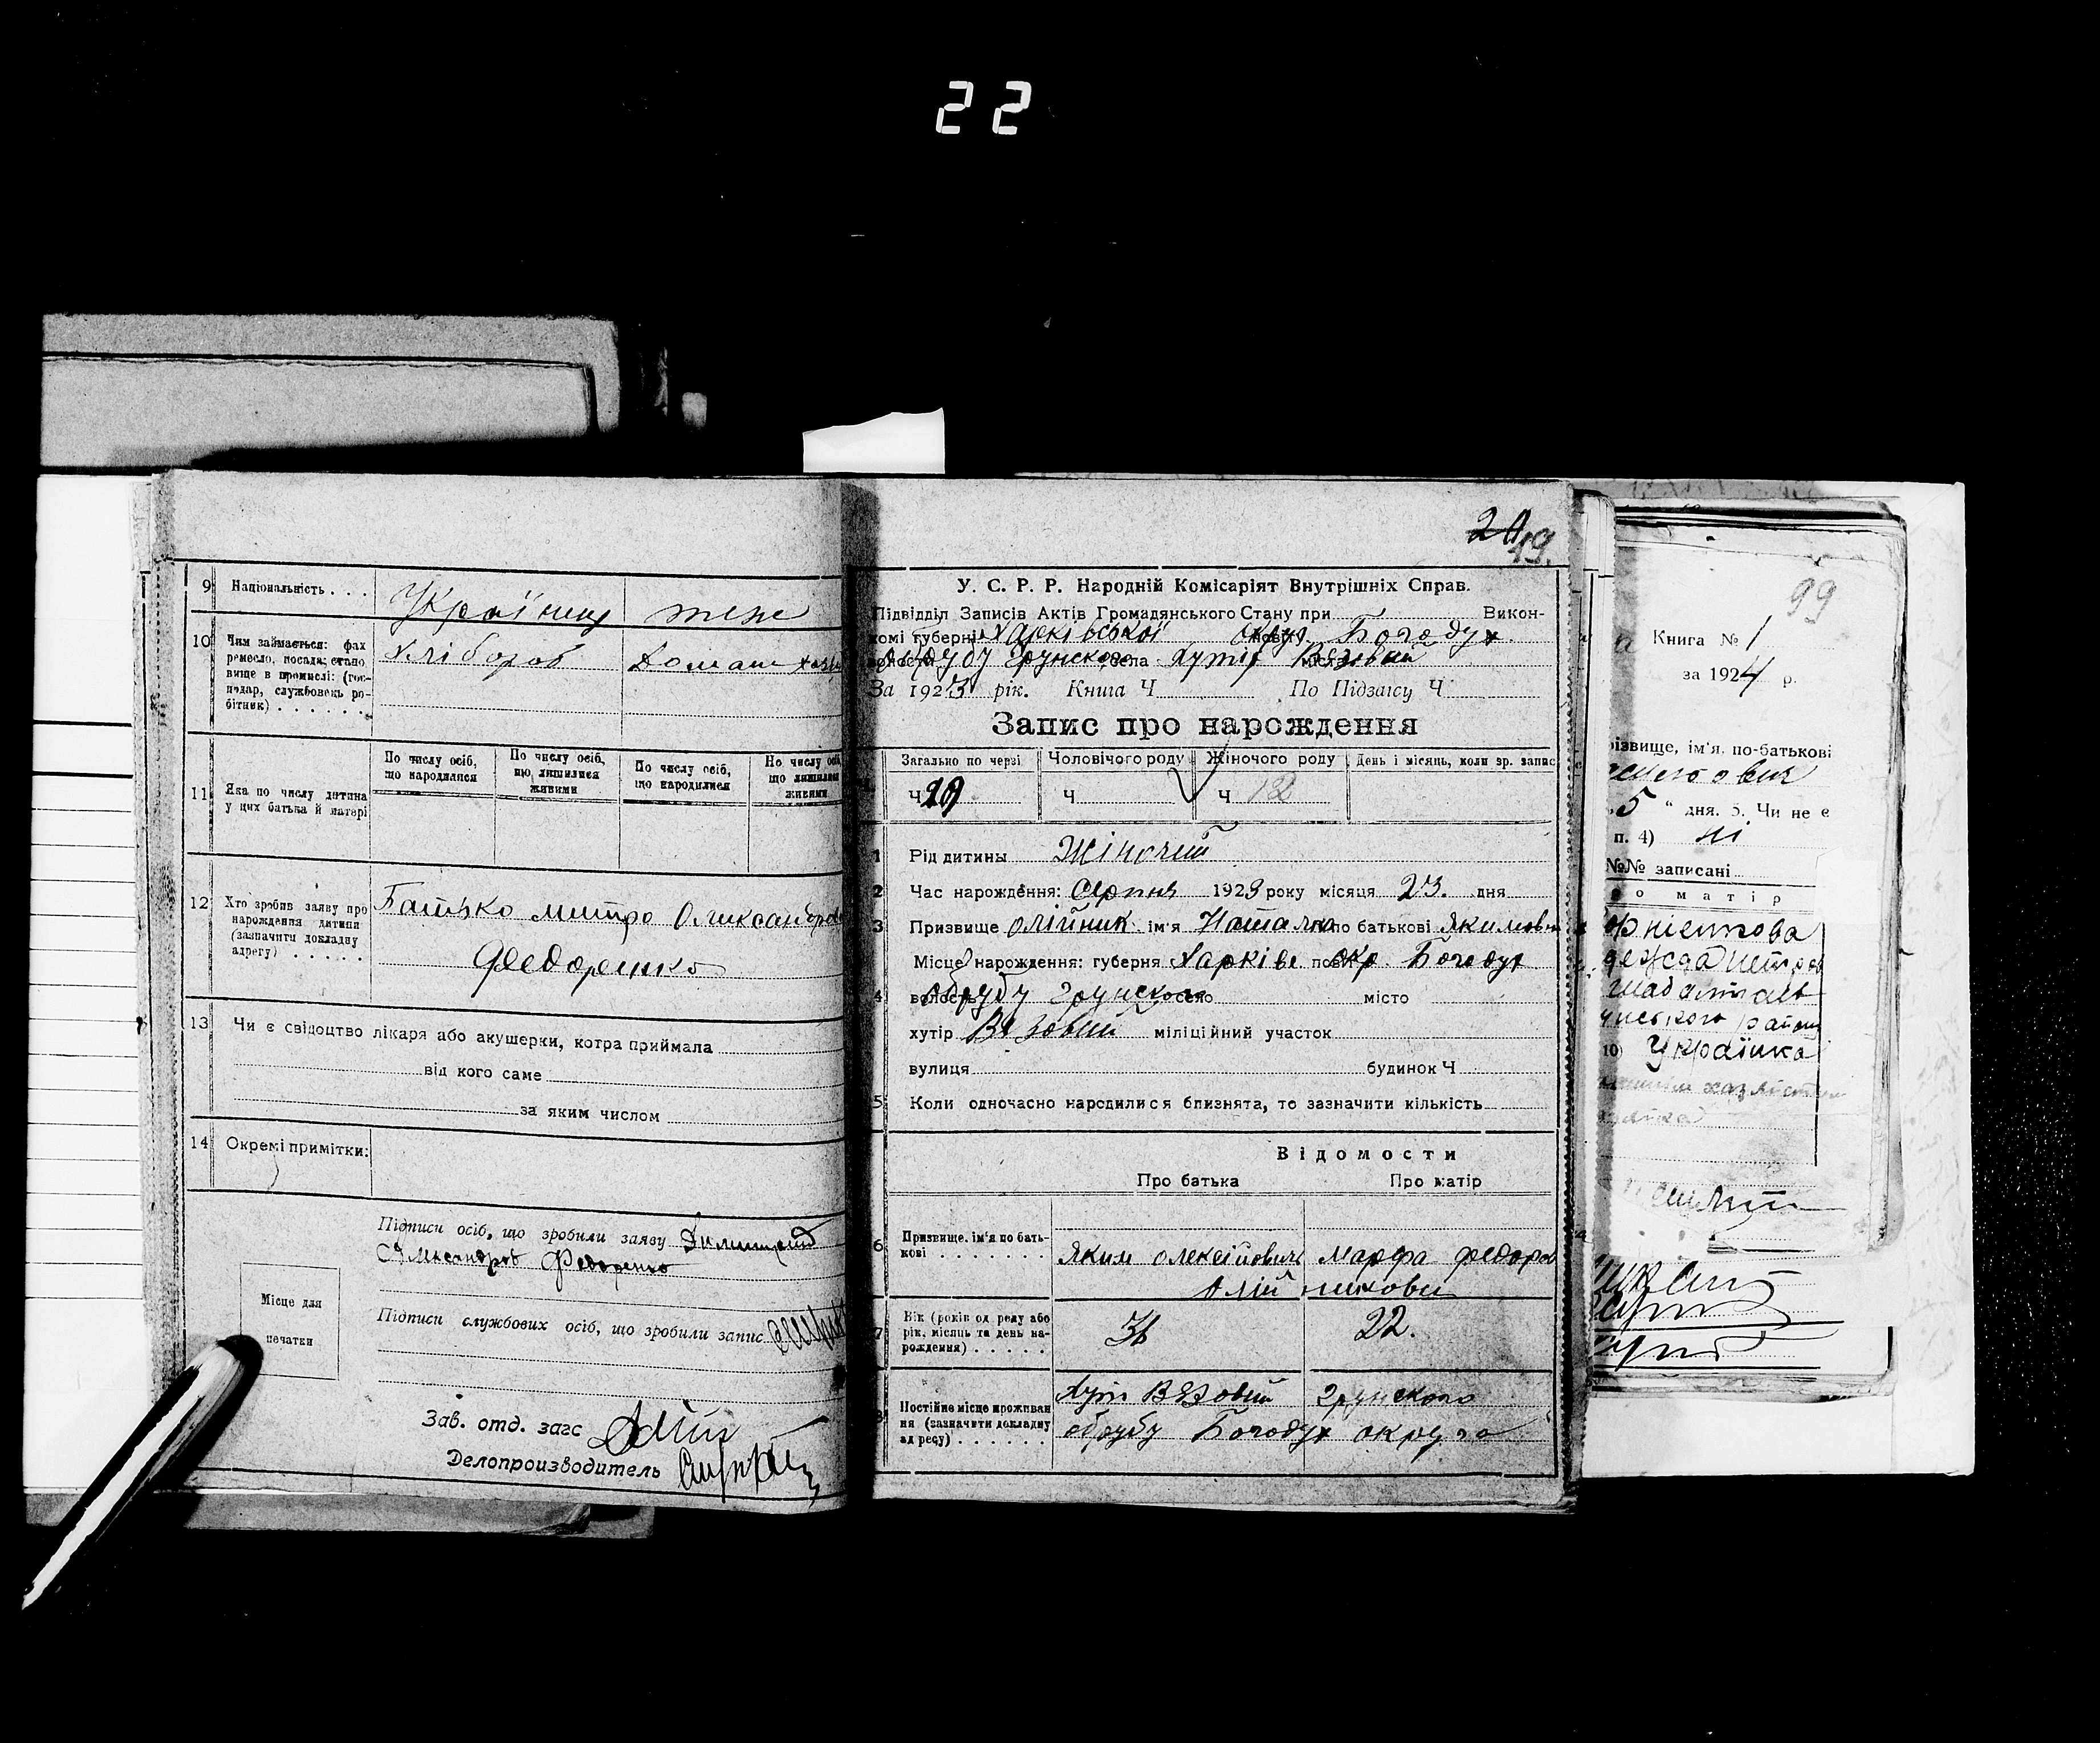 22
9 Національность . . .
Українец
теж
10 Чим займається: фах
ремесло, посада, стано
вище в промислі: (гос-
подар, службовець ро-
бітник) . . . . . .
Хлібороб
Домаш
11 Яка по числу дитина
у цих батька й матері
По числу осіб,
що народилися
По числу осіб,
що лишилися
живими
По числу осіб,
що народилися
По числу осіб
що лишилися
живими
12 Хто зробив заяву про
нарождення дитини
(зазначити докладну
адресу) . . . . .
Батько Митро Олександров
Федоренко
13 Чи є свідоцтво лікаря або акушерки, котра приймала
від кого саме
за яким числом
14 Окремі примітки:
Підписи осіб, що зробили заяву
Федоренко
Місце для
печатки
Підписи службових осіб, що зробили запис
Зав. отд. загс
Делопроизводитель
20 19.
У. С. Р. Р. Народній Комісаріят Внутрішніх Справ.
Підвідділ Записів Актів Громадянського Стану при Викон-
комі губерні Харківської округ. Богодух
обрубу Грунского села хутір Вязовий
За 1923 рік. Книга Ч По Підзагсу Ч
Запис про нарождення
Загально по черзі Чоловічого роду Жіночого роду День і місяць, коли зр. запис
Ч 19 Ч Ч 12
1 Рід дитины Жіночий
2 Час нарождення: Серпня 1923 року місяця 23. дня
3 Призвище Олійник ім'я Наталка по батькові Якимовн
Місце нарождення: губерня Харківс окр. Богодух
4 волость обрубу Грунского село місто
хутір Вязовий міліційний участок
вулиця будинок Ч
5 Коли одночасно народилися близнята, то зазначити кількість
Відомости
Про батька Про матір
6 Призвище, ім'я по бать-
кові . . . . . . .
Яким Олексійович Марфа Федоров
Олійникови
7 Вік (років од роду або
рік, місяць та день на-
рождення) . . . . .
22.
8 Постійне місце проживан
ня (зазначити докладну
адресу) . . . . . .
Хут Вязовий Грунского
обрубу Богодух округа
99
Книга № 1
за 1924 р.
ізвище, ім'я, по-батькові
5 " дня. 5. Чи не є
п. 4) ні
№№ записані
о матір
10) Українка